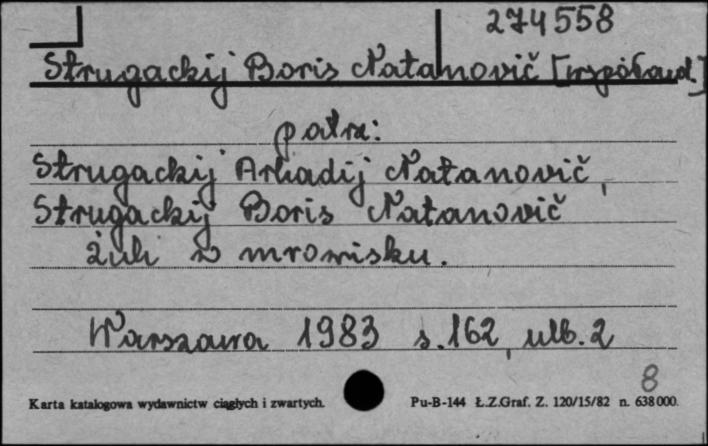 274558
Strugackij Boris Natanovič [współaut.]
patrz:
Strugackij Arkadij Natanovič,
Strugackij Boris Natanovič
Żuk w mrowisku.
Warszawa 1983 s. 162, ulb. 2
8
Karta katalogowa wydawnictw ciągłych i zwartych. Pu-B-144 Ł.Z.Graf. Z. 120/15/82 n. 638000.